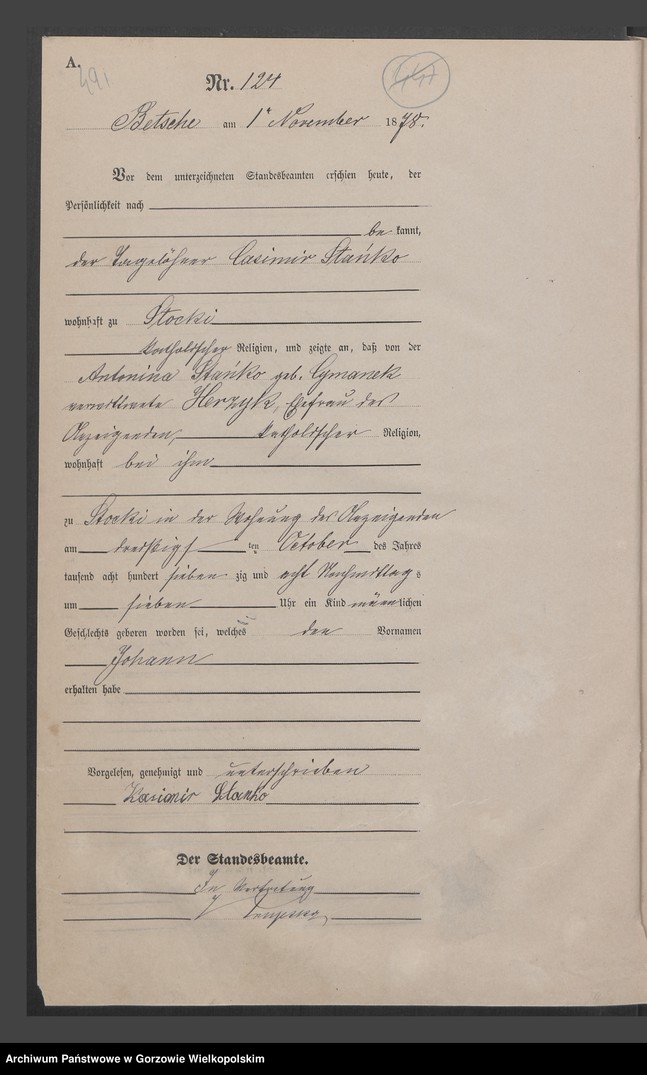 A.
491
Nr. 124
Betsche am 1t November 1878.
Vor dem unterzeichneten Standesbeamten erschien heute, der
Persönlichkeit nach
be kannt,
der Tagelöhner Casimir Stańko
wohnhaft zu Stocki
katholischer Religion, und zeigte an, daß von der
Antonina Stańko geb. Cymanek
verwittwete Herzyk, Ehefrau des
Anzeigenden, katholischer Religion,
wohnhaft bei ihm
zu Stocki in der Wohnung des Anzeigenden
am dreißigs ten October des Jahres
tausend acht hundert sieben zig und acht Nachmittag s
um sieben Uhr ein Kind männ lichen
Geschlechts geboren worden sei, welches den Vornamen
Johann
erhalten habe
Vorgelesen, genehmigt und unterschrieben
Kasimir Stanko
Der Standesbeamte.
In Vertretung
Archiwum Państwowe w Gorzowie Wielkopolskim